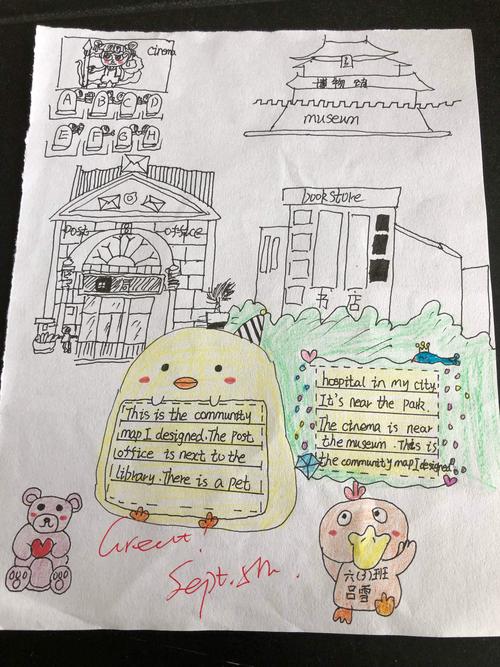 cinema
A B C D
E F G H
博物馆
museum
post office
bookstore
书店
This is the community
map I designed. The Post
office is next to the
library. There is a pet
hospital in my city.
It's near the park.
The cinema is near
the museum. This is
the community map I designed
Great!
Sept. 8th.
六(3)班
吕雪